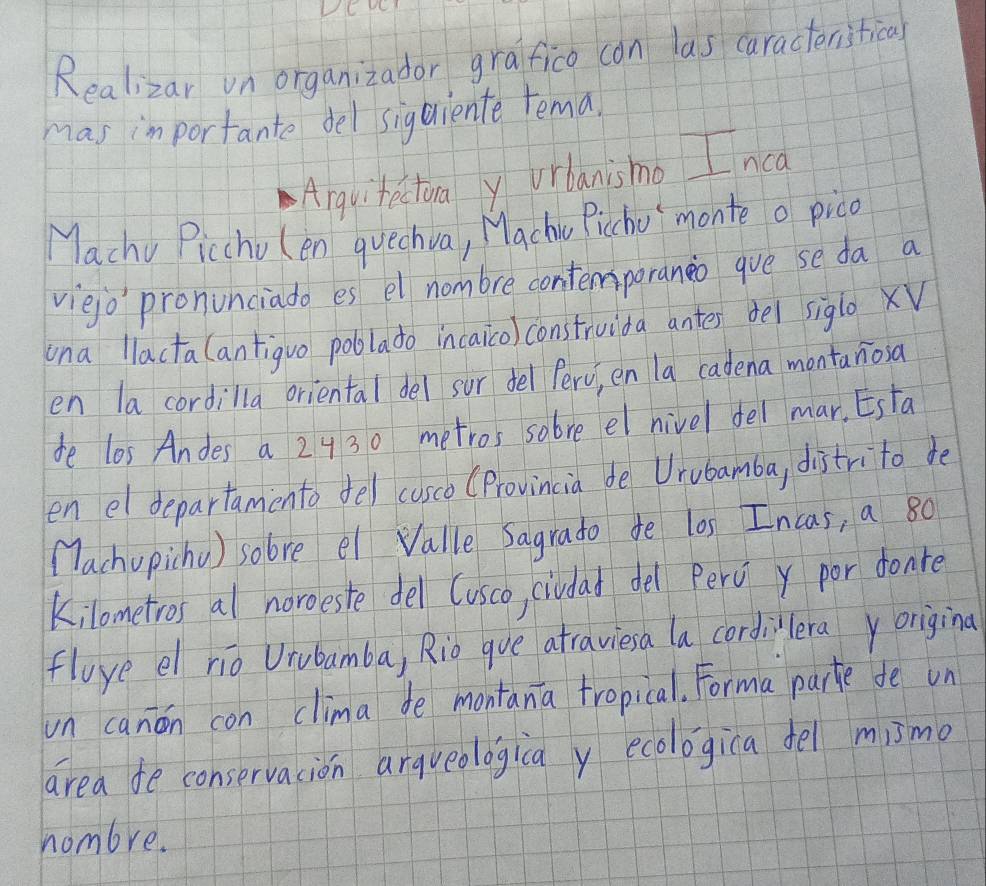 Realizar un organizador gráfico con las características
mas importante del siguiente tema.
Arquitéctura y urbanismo Inca
Machu Picchu (en quechua, Machu Picchu' monte o pico
viejo' pronunciado es el nombre contemporaneo que se da a
una llacta (antiguo poblado incaico) construida antes del siglo XV
en la cordilla oriental del sur del Perú, en la cadena montañosa
de los Andes a 2430 metros sobre el nivel del mar. Esta
en el departamento del cusco (Provincia de Urubamba, distrito de
Machupichu) sobre el Valle Sagrado de los Incas, a 80
Kilometros al noroeste del Cusco, ciudad del Perú y por donde
fluye el río Urubamba, Rio que atraviesa la cordillera y origina
un cañón con clima de montaña tropical. Forma parte de un
área de conservación arqueológica y ecológica del mismo
nombre.